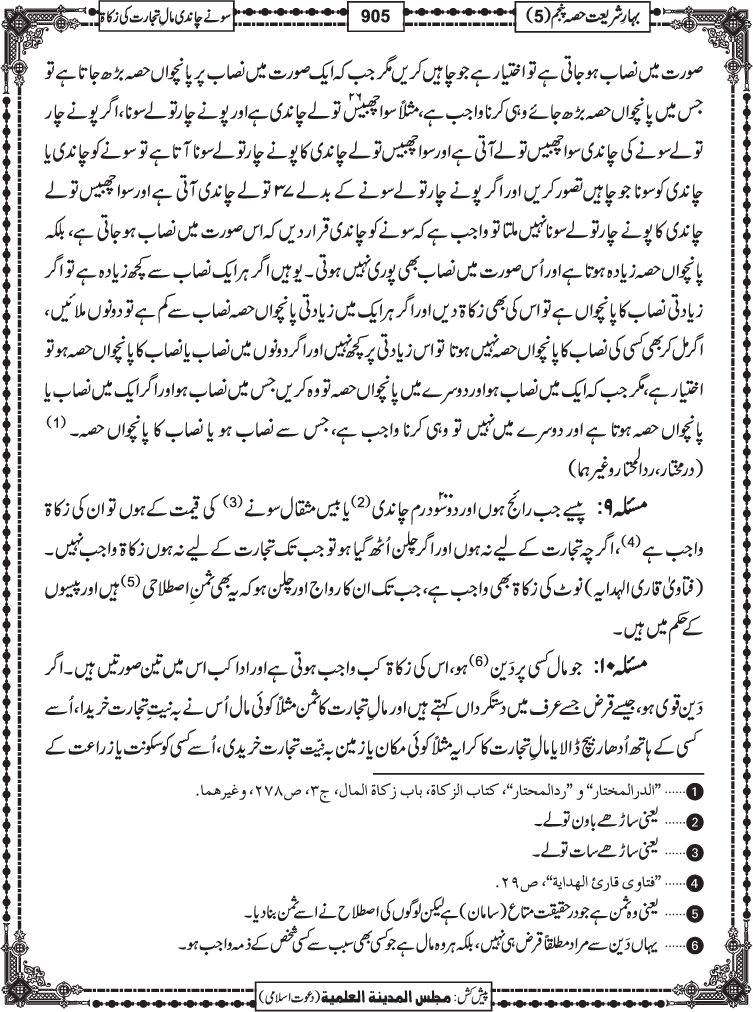 بہارِ شریعت حصہ پنجم (5)
905
سونے چاندی مالِ تجارت کی زکاۃ
صورت میں نصاب ہو جاتی ہے تو اختیار ہے جو چاہیں کریں مگر جب کہ ایک صورت میں نصاب پر پانچواں حصہ بڑھ جاتا ہے تو
جس میں پانچواں حصہ بڑھ جائے وہی کرنا واجب ہے، مثلاً سوا چھبیس ۲۶ تولے چاندی ہے اور پونے چار تولے سونا، اگر پونے چار
تولے سونے کی چاندی سوا چھبیس تولے آتی ہے اور سوا چھبیس تولے چاندی کا پونے چار تولے سونا آتا ہے تو سونے کو چاندی یا
چاندی کو سونا جو چاہیں تصور کریں اور اگر پونے چار تولے سونے کے بدلے ۳۷ تولے چاندی آتی ہے اور سوا چھبیس تولے
چاندی کا پونے چار تولے سونا نہیں ملتا تو واجب ہے کہ سونے کو چاندی قرار دیں کہ اس صورت میں نصاب ہو جاتی ہے، بلکہ
پانچواں حصہ زیادہ ہوتا ہے اور اُس صورت میں نصاب بھی پوری نہیں ہوتی۔ یوہیں اگر ہر ایک نصاب سے کچھ زیادہ ہے تو اگر
زیادتی نصاب کا پانچواں ہے تو اس کی بھی زکاۃ دیں اور اگر ہر ایک میں زیادتی پانچواں حصہ نصاب سے کم ہے تو دونوں ملائیں،
اگر مل کر بھی کسی کی نصاب کا پانچواں حصہ نہیں ہوتا تو اس زیادتی پر کچھ نہیں اور اگر دونوں میں نصاب یا نصاب کا پانچواں حصہ ہو تو
اختیار ہے، مگر جب کہ ایک میں نصاب ہو اور دوسرے میں پانچواں حصہ تو وہ کریں جس میں نصاب ہو اور اگر ایک میں نصاب یا
پانچواں حصہ ہوتا ہے اور دوسرے میں نہیں تو وہی کرنا واجب ہے، جس سے نصاب ہو یا نصاب کا پانچواں حصہ۔ (1)
(درمختار، ردالمحتار وغیرہما)
مسئلہ ۹: پیسے جب رائج ہوں اور دو سو ۲۰۰ درم چاندی (2) یا بیس مثقال سونے (3) کی قیمت کے ہوں تو ان کی زکاۃ
واجب ہے (4)، اگرچہ تجارت کے لیے نہ ہوں اور اگر چلن اُٹھ گیا ہو تو جب تک تجارت کے لیے نہ ہوں زکاۃ واجب نہیں۔
(فتاویٰ قاری الہدایہ) نوٹ کی زکاۃ بھی واجب ہے، جب تک ان کا رواج اور چلن ہو کہ یہ بھی ثمنِ اصطلاحی (5) ہیں اور پیسوں
کے حکم میں ہیں۔
مسئلہ ۱۰: جو مال کسی پر دَین (6) ہو، اس کی زکاۃ کب واجب ہوتی ہے اور ادا کب اس میں تین صورتیں ہیں۔ اگر
دَین قوی ہو، جیسے قرض جسے عرف میں دستگرداں کہتے ہیں اور مالِ تجارت کا ثمن مثلاً کوئی مال اُس نے بہ نیتِ تجارت خریدا، اُسے
کسی کے ہاتھ اُدھار بیچ ڈالا یا مالِ تجارت کا کرایہ مثلاً کوئی مکان یا زمین بہ نیّت تجارت خریدی، اُسے کسی کو سکونت یا زراعت کے
1 ...... "الدرالمختار" و "ردالمحتار"، کتاب الزکاة، باب زکاة المال، ج۳، ص۲۷۸، وغیرھما.
2 ...... یعنی ساڑھے باون تولے۔
3 ...... یعنی ساڑھے سات تولے۔
4 ...... "فتاوی قارئ الهداية"، ص۲۹.
5 ...... یعنی وہ ثمن ہے جو درحقیقت متاع (سامان) ہے لیکن لوگوں کی اصطلاح نے اسے ثمن بنا دیا۔
6 ...... یہاں دَین سے مراد مطلقاً قرض ہی نہیں، بلکہ ہر وہ مال ہے جو کسی بھی سبب سے کسی شخص کے ذمہ واجب ہو۔
پیش کش: مجلس المدینة العلمیة (دعوت اسلامی)